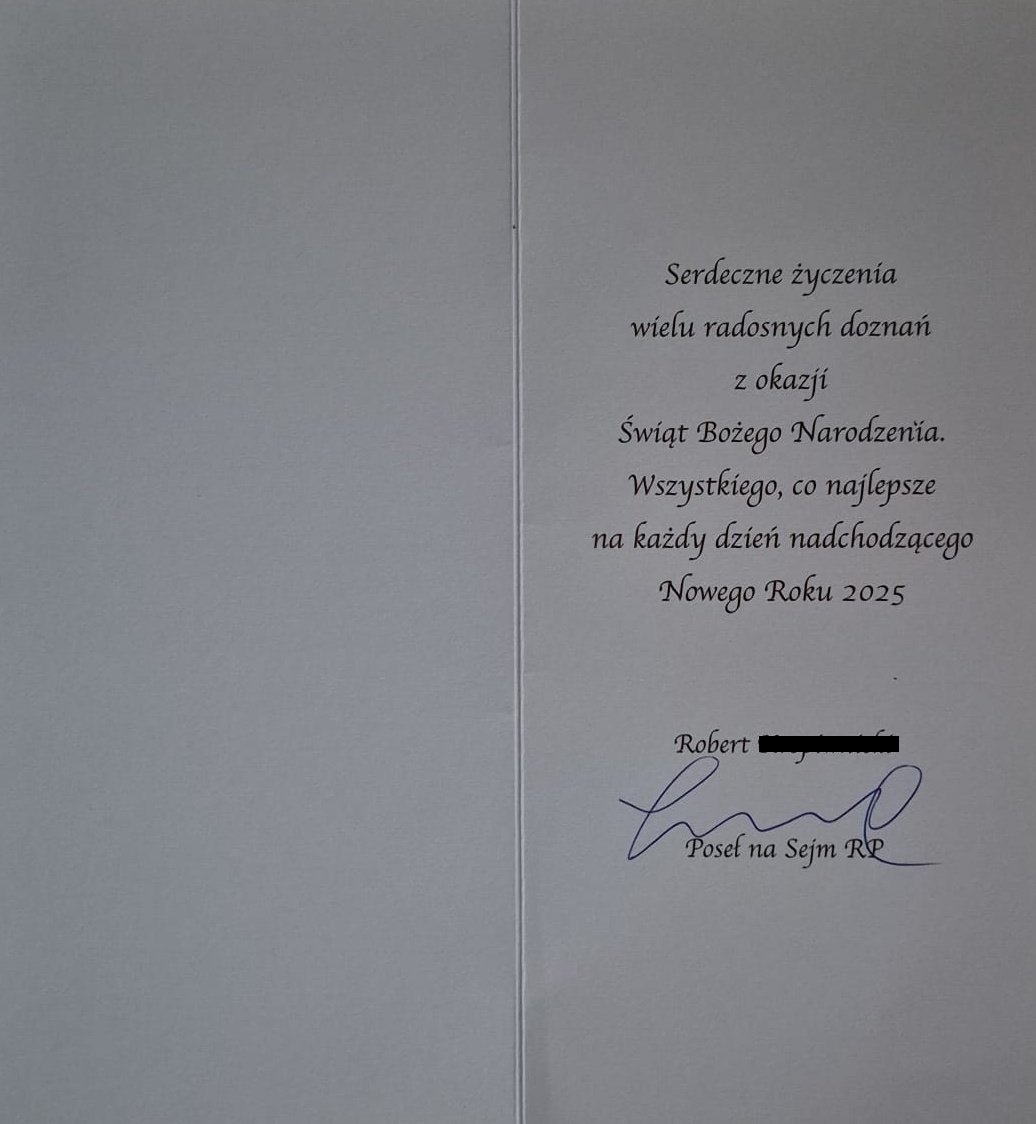 Serdeczne życzenia
wielu radosnych doznań
z okazji
Świąt Bożego Narodzenia.
Wszystkiego, co najlepsze
na każdy dzień nadchodzącego
Nowego Roku 2025
Robert
Poseł na Sejm RP